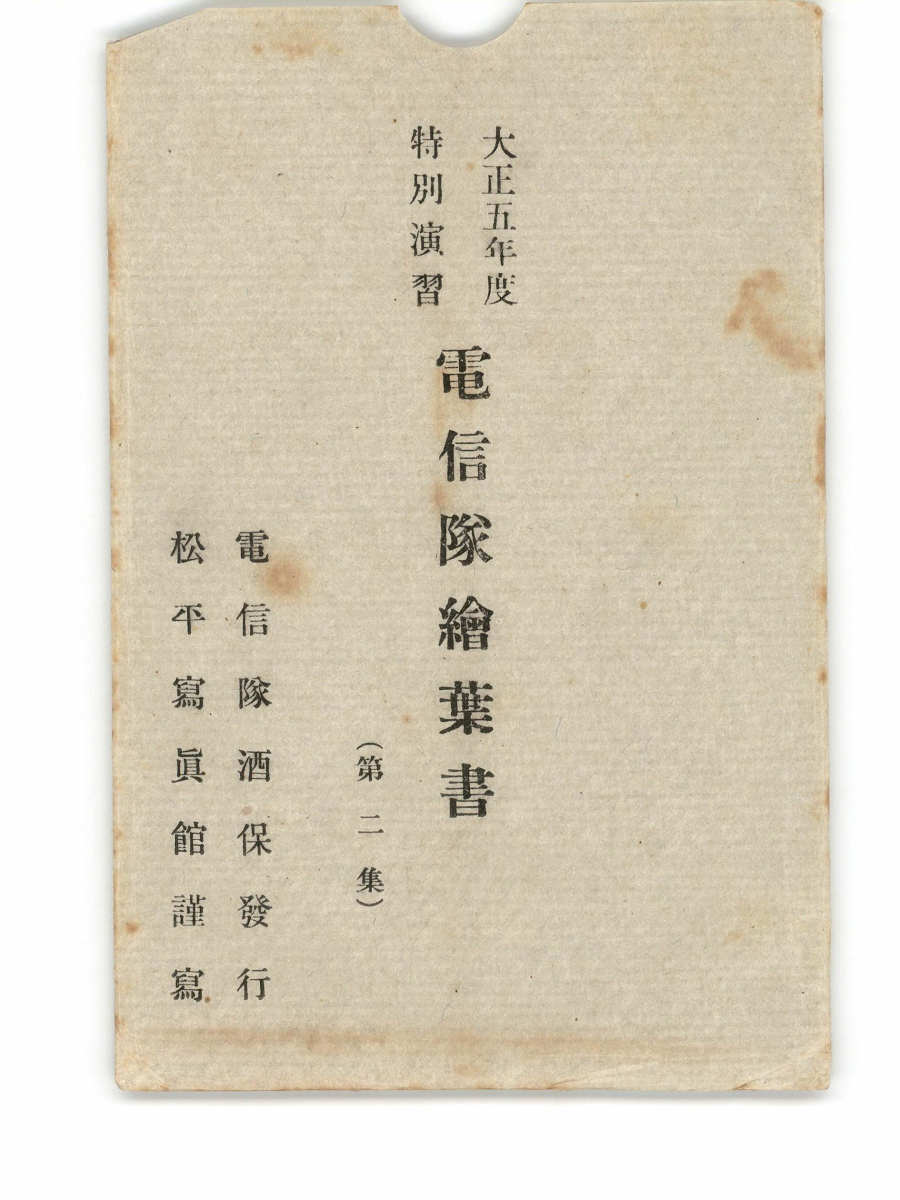 大正五年度
特別演習
電信隊繪葉書
(第二集)
電信隊酒保發行
松平寫眞館謹寫